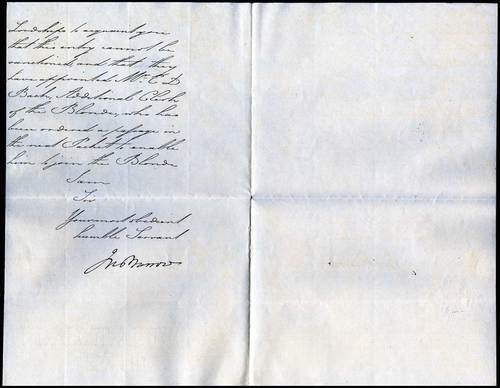 Lordships to acquaint you
that this entry cannot be
sanctioned, and that they
have appointed Mr. C D
Additional Clerk
of the Blonde, who has
been ordered a passage in
the next Packet to enable
him to join the Blonde
I am
Sir
Your most obedient
humble Servant
Jno Barrow